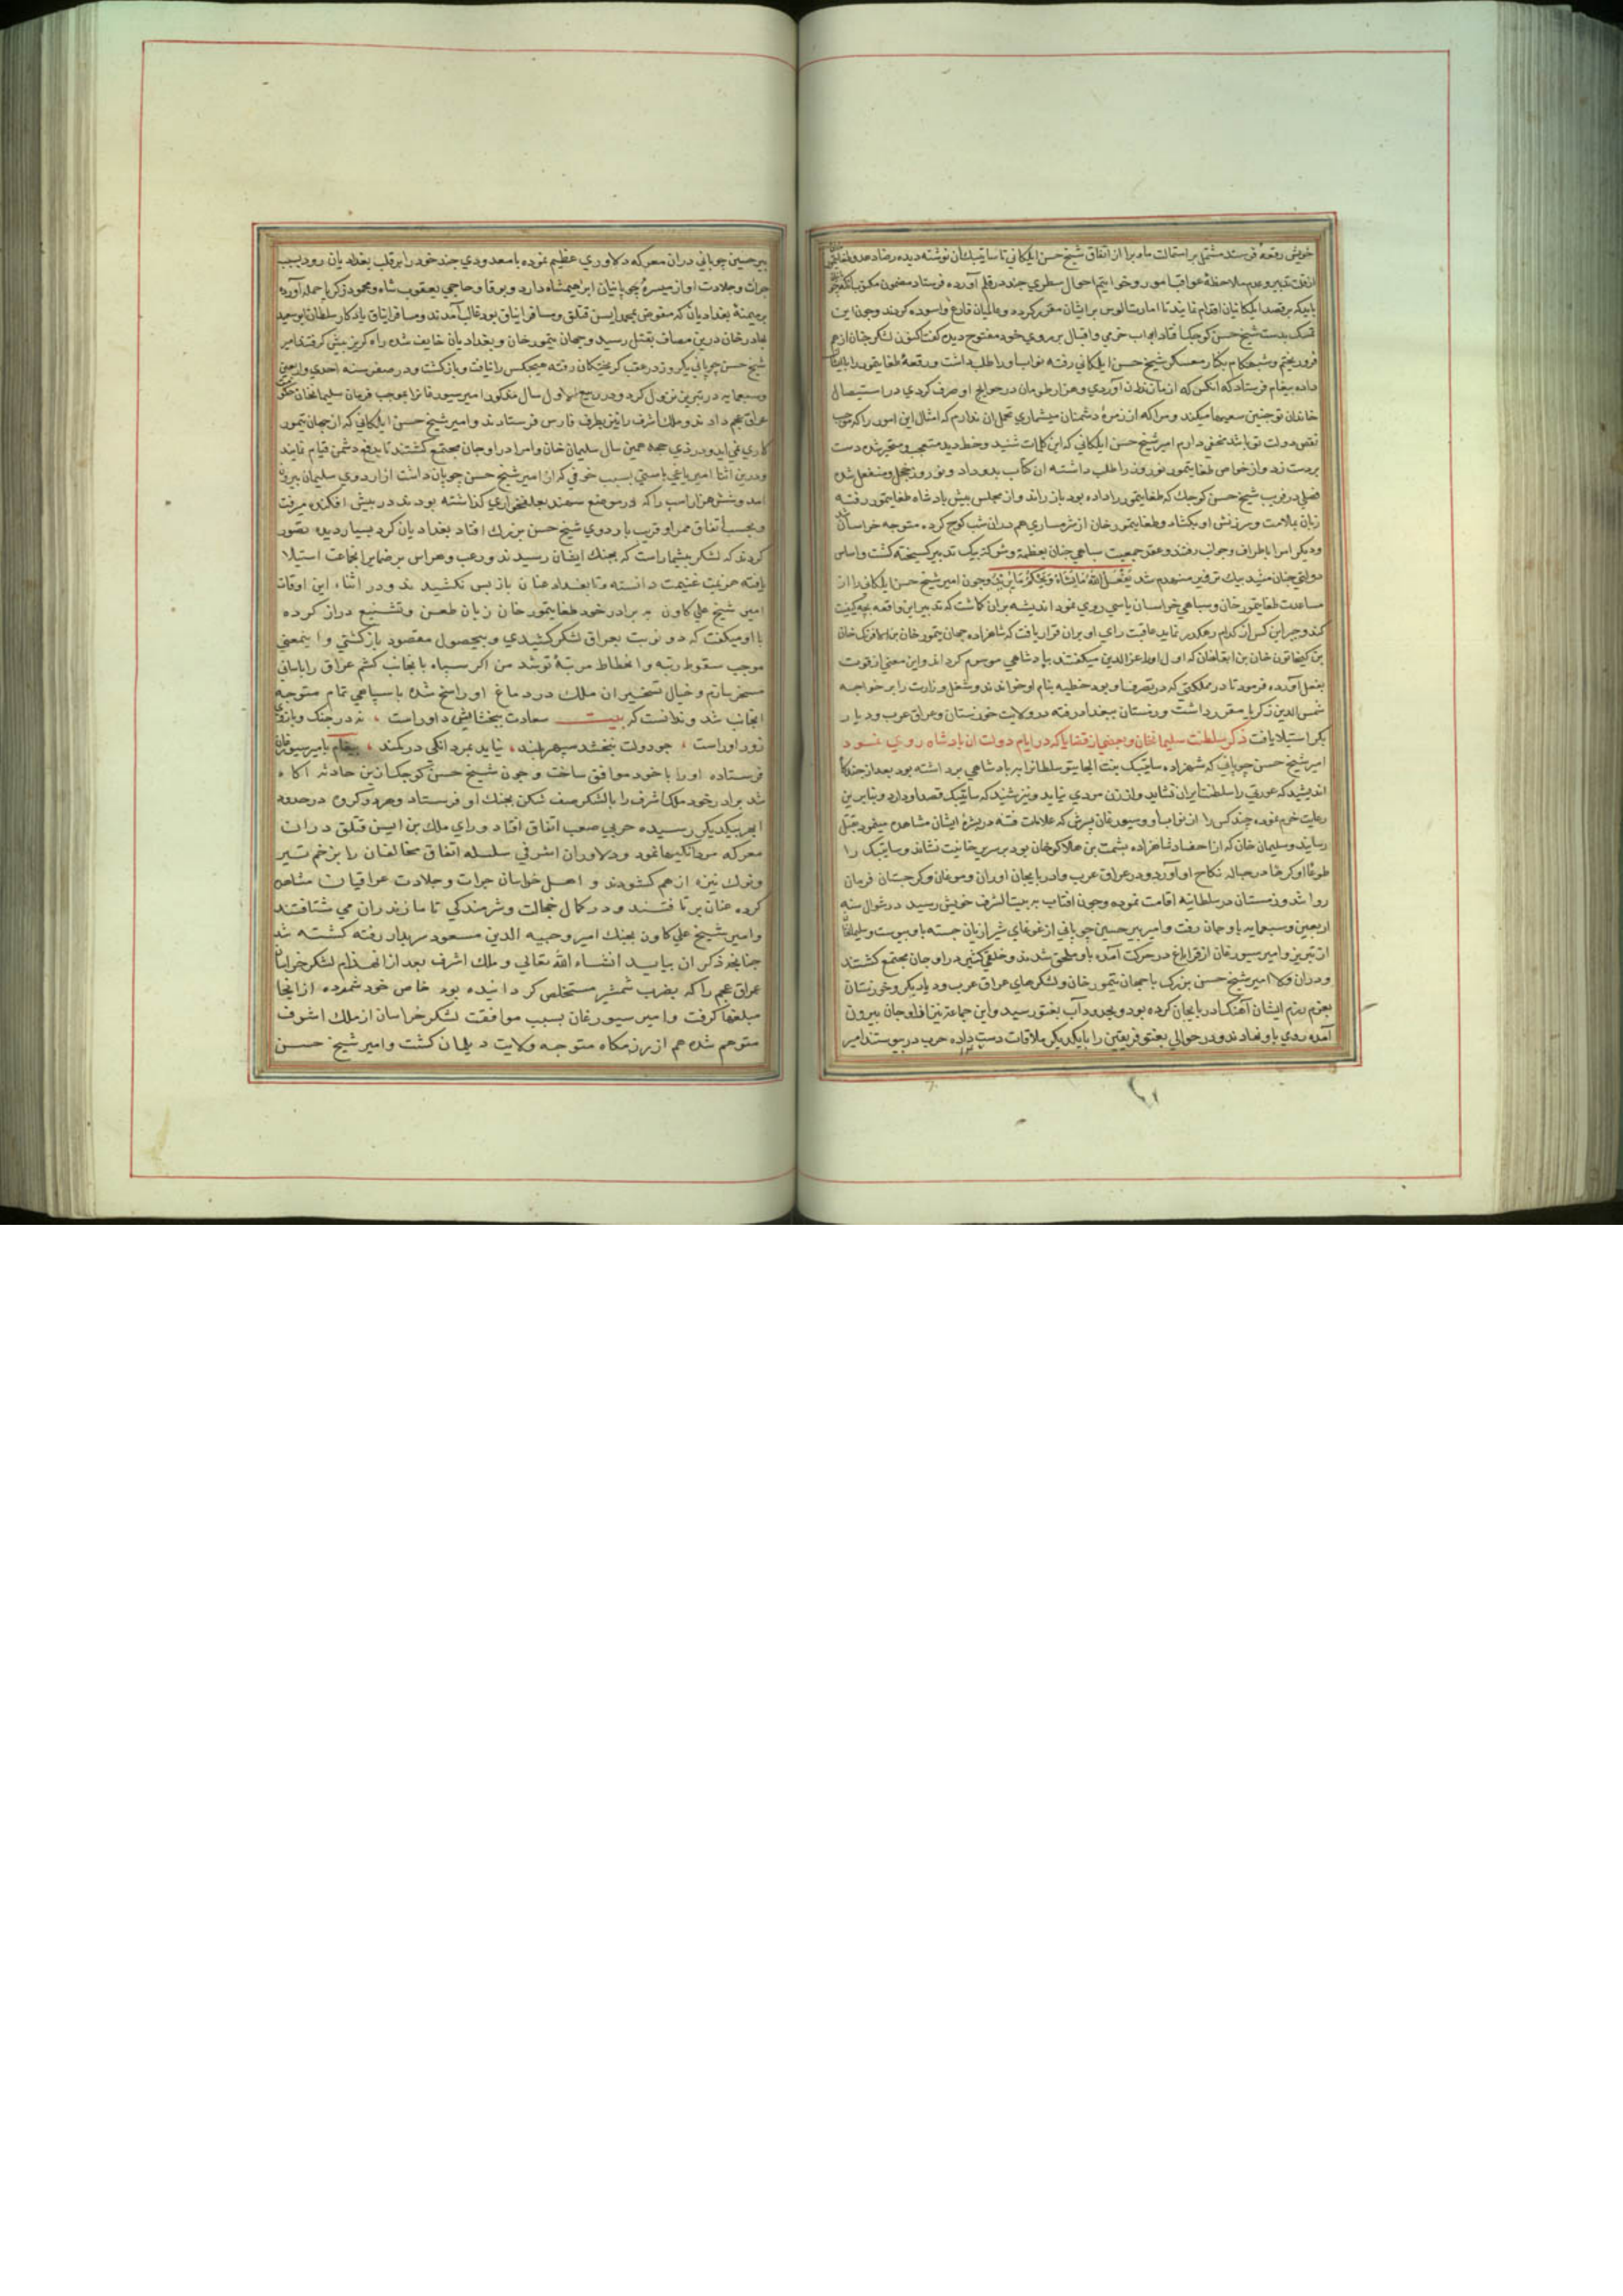 خویش رقعهٔ فرستد مشتمل بر استمالت ماه برا از اتفاق شیخ حسن ایلکانی تا ساتیبک آن نوشته دیده
از قلت تدبیر و عدم ملاحظهٔ عواقب امور و خواتیم احوال سطری چند در قلم آورده فرستاد مضمون مکتوب آنکه
باید که بر قصد ایلکانیان اقدام نمایند تا امارت الوس بر ایشان مقرر کردد و والیان فارغ و اسوده کردند و چون این
تمسک بدست شیخ حسن کوچک افتاد ابواب خرمی و اقبال بر روی خود مفتوح دید و کفت اکنون لشکر چنان از هم
فرو ریختم و شبهنکام بکنار معسکر شیخ حسن ایلکانی رفته نواب او را طلب داشت و رقعهٔ طغایتمور را بایشان
داده پیغام فرستاد که انکس که از مازندران آوردی و هزار طومان در حوایج او صرف کردی در استیصال
خاندان تو چنین سعیها میکند و مرا که از زمرهٔ دشمنان میشماری تحمل ان ندارم که امثال این امور را که موجب
نقص دولت تو باشد مخفی دارم امیر شیخ حسن ایلکانی که این کلمات شنید و خط دید متعجب و متحیر شده دست
بر دست زد و از خواص طغایتمور نوروز را طلب داشته ان کتاب بدو داد و نوروز خجل و منفعل شده
فصلی در فریب شیخ حسن کوچک که طغایتمور را داده بود باز راند و از مجلس پیش پادشاه طغایتمور رفته
زبان بملامت و سرزنش او بکشاد و طغایتمور خان از شرمساری هم در ان شب کوچ کرده متوجه خراسان شد
و دیکر امرا باطراف و جوانب رفتند و عقد جمعیت سپاهی چنان بعظمة و شوکة بیک تدبیر کسیخته کشت و اساس
دولتی چنان مشید بیک تزویر منهدم شد یفعل الله ما یشاء و یحکم ما یرید و چون امیر شیخ حسن ایلکانی را از
مساعدت طغایتمور خان و سپاهی خراسان یاسی روی نمود اندیشه بران کماشت که تدبیر این واقعه بچه کیفیت
کند و جبر این کسر از کدام رهکذر نماید عاقبت رای او بران قرار یافت که شاهزاده جهان تیمور خان بن الافرنک خان
بن کیخاتون خان بن ابقاخان که اول او را عزالدین میکفتند بپادشاهی موسوم کرداند و این معنی از قوت
بفعل آورده فرمود تا در مملکتی که در تصرف او بود خطبه بنام او خواندند و شغل وزارت را بر خواجه
شمس الدین زکریا مقرر داشت و زمستان ببغداد رفته در ولایت خوزستان و عراق عرب و دیار
بکر استیلا یافت ذکر سلطنت سلیمانخان و بعضی از قضایا که در ایام دولت ان پادشاه روی نمود
امیر شیخ حسن چوپانی که شهزاده ساتیبک بنت الجایتو سلطانرا بر پادشاهی برداشته بود بعد از چندکاه
اندیشید که عورتی را سلطنت ایران نشاید و از زن مردی نیاید و نیز شنید که ساتیبک قصد او دارد و بنابرین
رعایت حزم نموده چند کس را از نواب او و سیورغان پسرش که علامات فتنه در بشرهٔ ایشان مشاهده مینمود بقتل
رسانید و سلیمان خان که از احفاد شاهزاده یشمت بن هلاکو خان بود بر سریر خانیت نشاند و ساتیبک را
طوعا او کرها در حباله نکاح او آورد و در عراق عرب و اذربایجان و اران و موغان و کرجستان فرمان
روا شد و زمستان در سلطانیه اقامت نموده و چون افتاب ببرج بیت الشرف خویش رسید در شوال سنه
اربعین و سبعمایه باوجان رفت و امیر پیر حسین چوپانی از غوغای شیرازیان جسته باو پیوست و سلیمانخان
از تبریز و امیر سیورغان از قراباغ در حرکت آمده باو ملحق شدند و خلقی کثیر در اوجان مجتمع کشتند
و دران ولا امیر شیخ حسن بزرک با جهان تیمور خان و لشکرهای عراق عرب و دیاربکر و خوزستان
بعزم رزم ایشان آهنک اذربایجان کرده بود و بحدود آب بغتو رسید و این جماعة نیز از اوجان بیرون
آمده روی باو نهادند و در حوالی بغتو فریقین را با یکدیکر ملاقات دست داده حرب در پیوستند امیر
پیر حسین چوپانی دران معرکه دلاوری عظیم نموده با معدودی چند خود را بر قلب بغدادیان زد و بسبب
جرات و جلادت او از میسرهٔ چوپانیان ابراهیمشاه دارد و برقا و حاجی یعقوب شاه و محمود زکریا حمله آورده
بر میمنهٔ بغدادیان که مفوض بمحمد ایسن قتلق و مسافر ایناق بود غالب آمدند و مسافر ایناق یادکار سلطان ابوسعید
بهادر خان درین مصاف بقتل رسید و جهان تیمور خان و بغدادیان خایف شده راه کریز پیش کرفتند امیر
شیخ حسن چوپانی یکروز در عقب کریختکان رفته هیچکس را نیافت و بازکشت و در صفر سنه احدی و اربعین
و سبعمایه در تبریز نزول کرد و در ربیع الاول سال مذکور امیر سیورغانرا بموجب فرمان سلیمانخان
عراق عجم دادند و ملک اشرف را نیز بطرف فارس فرستادند و امیر شیخ حسن ایلکانی که از جهان تیمور
کاری نمی اید و در ذی حجه همین سال سلیمان خان و امرا در اوجان مجتمع کشتند تا بدفع دشمن قیام نمایند
و درین اثنا امیر یاغی باستی بسبب خوفی که از امیر شیخ حسن چوپان داشت از اردوی سلیمان بیرون
امد و شش هزار اسپ را که در موضع سهند بعلفخواری کذاشته بودند در پیش افکنده میرفت
و بحسب اتفاق ممر او قریب باردوی شیخ حسن بزرک افتاد بغدادیان کرد بسیار دیده تصور
کردند که لشکر بیشمار است که بجنک ایشان رسیدند و رعب و هراس بر ضمایر انجماعت استیلا
یافته هزیمت غنیمت دانسته و تا بغداد عنان باز پس نکشیدند و در اثناء این اوقات
امیر شیخ علی کاون به برادر خود طغایتمور خان زبان طعن و تشنیع دراز کرده
با او میکفت که دو نوبت بعراق لشکر کشیدی و بیحصول مقصود بازکشتی و اینمعنی
موجب سقوط رتبه و انحطاط مرتبهٔ تو شد من اکر سپاه بانجانب کشم عراق را باسانی
مسخر سازم و خیال تسخیر ان ملک در دماغ او راسخ شده با سپاهی تمام متوجه
انجانب شد و ندانست که بیت سعادت ببخشایش داور است ، نه در جنک و بازوی
زور اور است ، چو دولت نبخشد سپهر بلند ، نیاید بمردانکی در کمند ، پیغام بامیر سیورغان
فرستاده او را با خود موافق ساخت و چون شیخ حسن کوچک ازین حادثه اکاه
شد برادر خود ملک اشرف را با لشکر صف شکن بجنک او فرستاد و هردو کروه در حدود
ابهر بیکدیکر رسیده حربی صعب اتفاق افتاد و رای ملک بن ایسن قتلق دران
معرکه مردانکیها نمود و دلاوران اشرفی سلسله اتفاق مخالفان را بزخم تیر
و نوک نیزه از هم کشودند و اهل خراسان جرات و جلادت عراقیان مشاهده
کرده عنان برتافتند و در کمال خجالت و شرمندکی تا مازندران می شتافتند
و امیر شیخ علی کاون بجنک امیر وجیه الدین مسعود سربدار رفته کشته شد
چنانچه ذکر ان بیاید انشاء الله تعالی و ملک اشرف بعد از انهزام لشکر خراسان
عراق عجم را که بضرب شمشیر مستخلص کردانیده بود خاص خود شمرده ازانجا
مبلغها کرفت و امیر سیورغان بسبب موافقت لشکر خراسان از ملک اشرف
متوهم شده هم از رزمکاه متوجه ولایت دیلمان کشت و امیر شیخ حسن